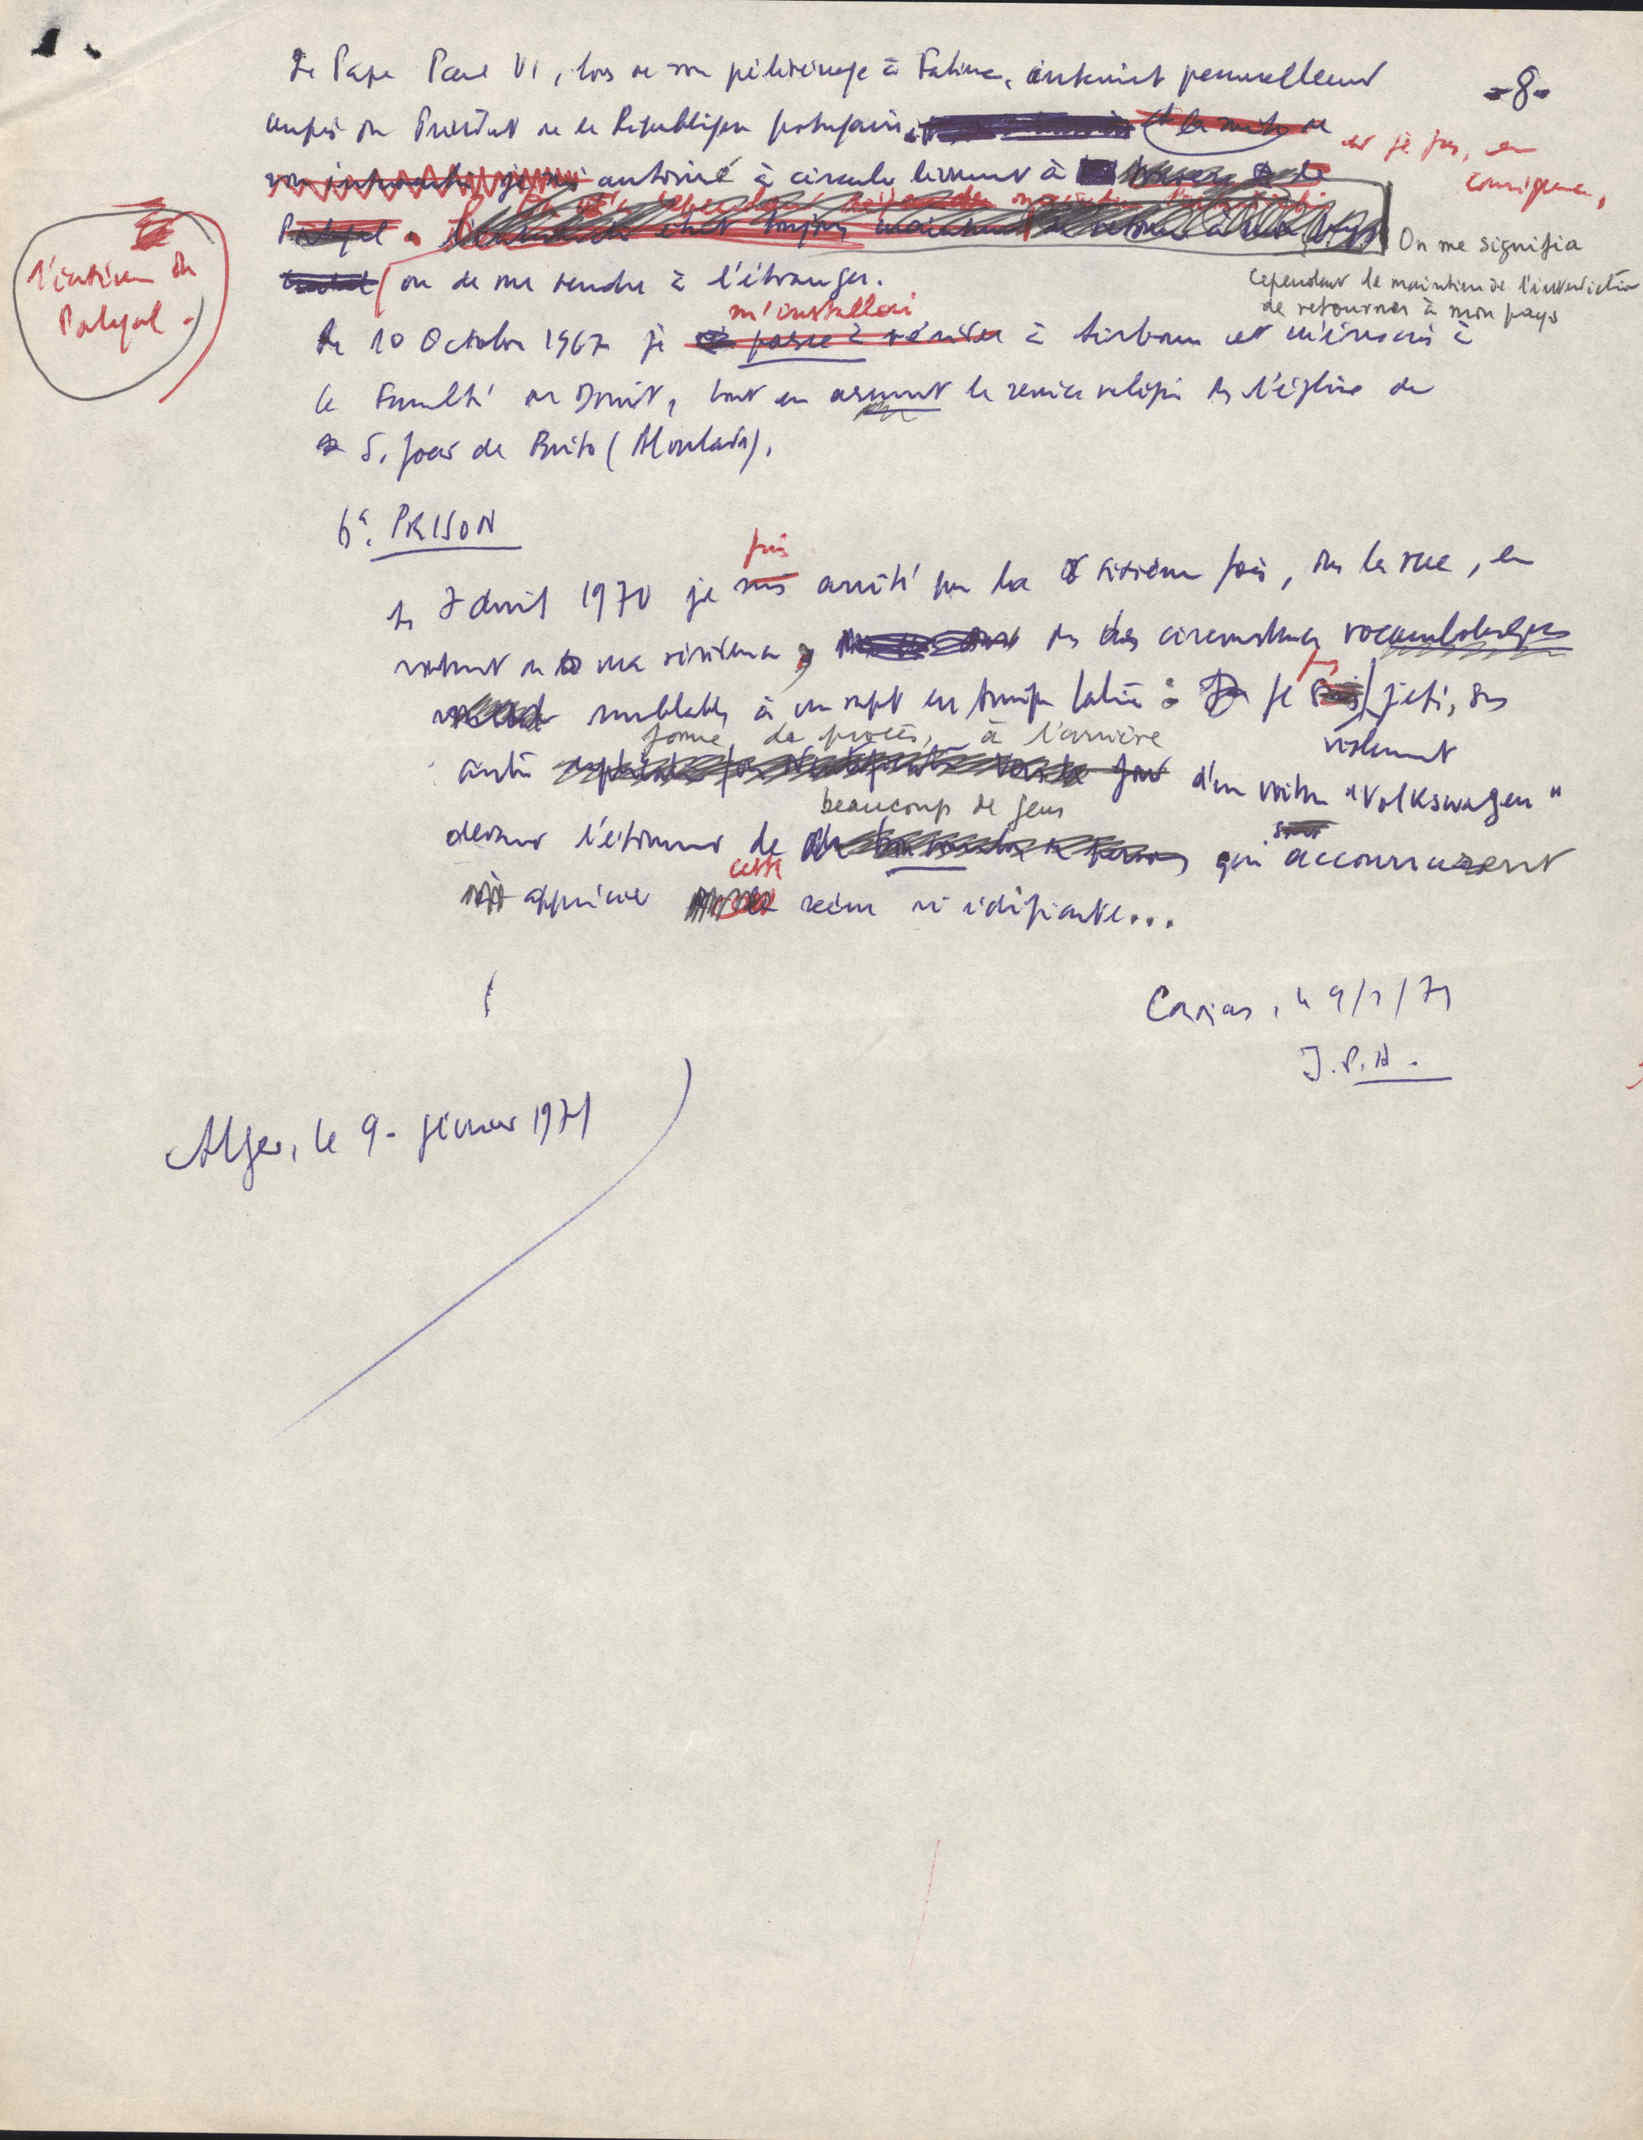 -8-
Le Pape Paul VI, lors de son pélerinage à Fatima, intervint personnellement
auprès du Président de la République portugaise et la suite de
et je fus, en
conséquence,
autorisé à circuler librement à
l'intérieur du
Portugal.
Portugal.
On me signifia
cependant le maintien de l'interdiction
de retourner à mon pays
ou de me rendre à l'étranger.
m'installai
Le 10 Octobre 1967 je passe à résider à Lisbonne et m'inscris à
la Faculté de Droit, tout en assurant le service religieux dans l'église de
S. Joao de Brito (Alvalade).
6ª. PRISON
fus
Le 7 avril 1970 je suis arrêté pour la sixième fois, dans la rue, en
rentrant à ma résidence, dans des circonstances rocambolesques
fus
semblables à un rapt en Amérique latine : Je jeté, sans
forme de procès, à l'arrière
violemment
autre d'une voiture "Volkswagen"
beaucoup de gens
devant l'étonnement de qui accoururent
cette
apprécier scène si édifiante...
Caxias, le 9/2/71
J.P.A.
Alger, le 9 - février 1971